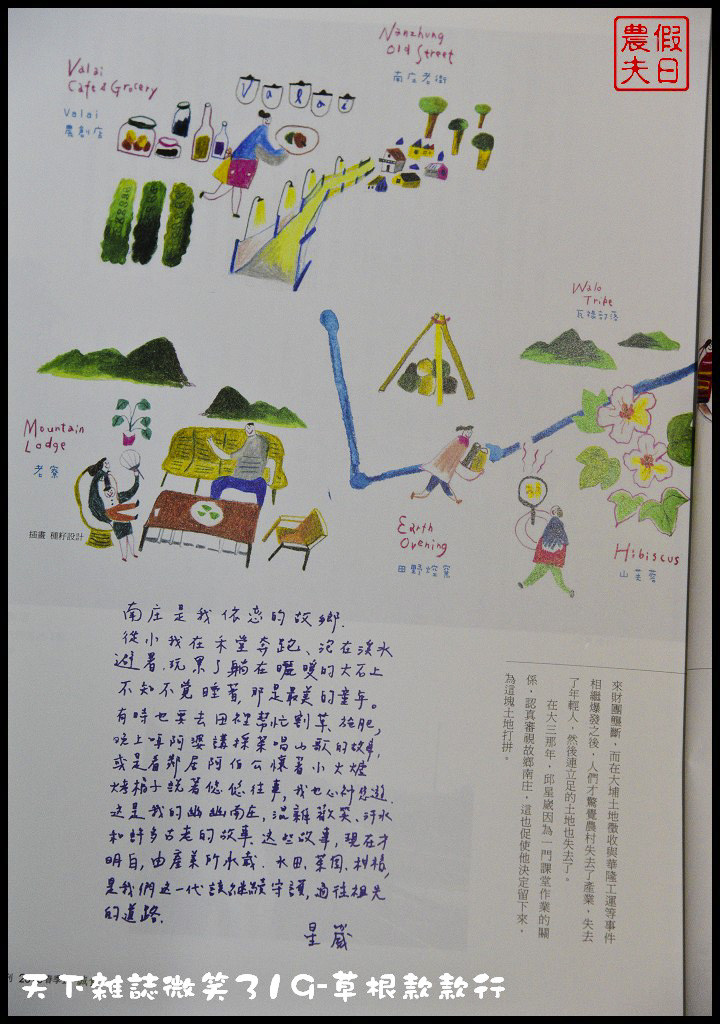 假日農夫
Nanzhung
Old Street
南庄老街
Valai
Cafe & Grocery
Valai
農創店
Valai
Walo
Tribe
瓦祿部落
Mountain
Lodge
老寮
插畫 種籽設計
Earth
Opening
田野炊窯
Hibiscus
山芙蓉
南庄是我依戀的故鄉.
從小我在禾堂奔跑、泡在溪水
避暑.玩累了躺在暖暖的大石上
不知不覺睡著,那是最美的童年。
有時也要去田裡幫忙割草、施肥,
晚上嘛阿婆講採茶唱山歌的故事,
或是看鄰居阿伯公懷著小火爐
烤柿子說著悠悠往事,我也心鈄悠遊.
這是我的幽幽南庄,混雜歡笑、汗水
和許多古老的故事.這些故事,現在才
明白,由產業所承載.水田、菜園、柿樹,
是我們這一代該繼續守護,通往祖先
的道路.
星崴
來財團壟斷,而在大埔土地徵收與華隆工運等事件
相繼爆發之後,人們才驚覺農村失去了產業、失去
了年輕人,然後連立足的土地也失去了。
在大三那年,邱星崴因為一門課堂作業的關
係,認真審視故鄉南庄,這也促使他決定留下來,
為這塊土地打拼。
天下雜誌微笑319-草根款款行